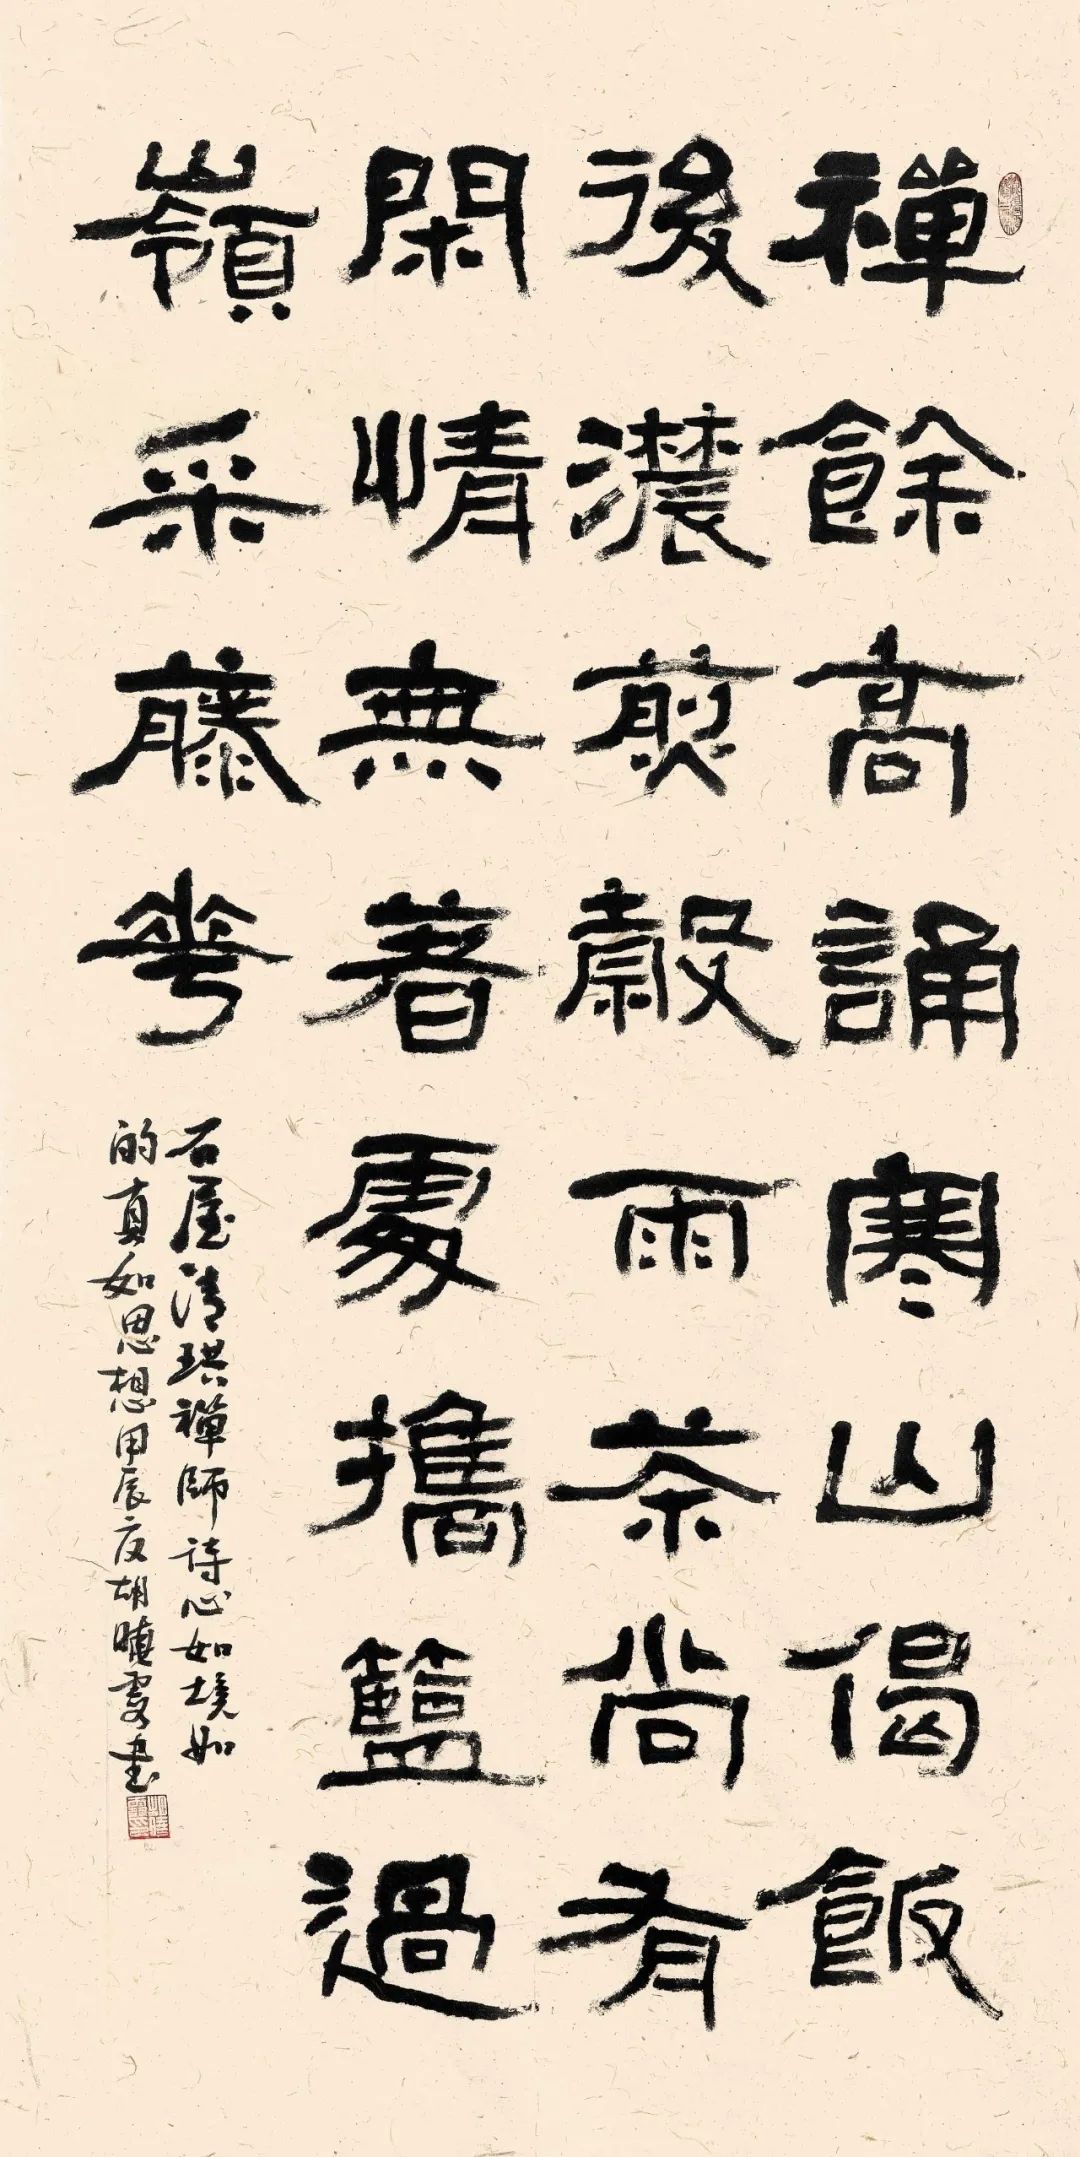 禪餘高誦寒山偈飯
後濃煎穀雨茶尚有
閑情無著處攜籃過
嶺采藤花
石屋清珙禪師詩心如境如
的真如思想甲辰夏胡曉雯書